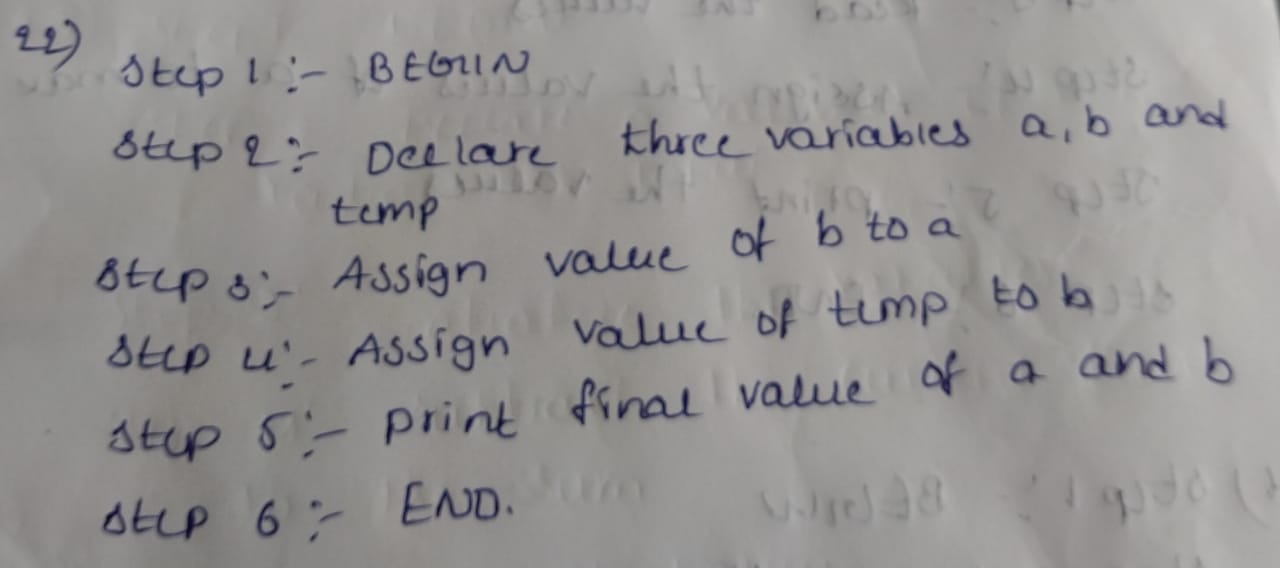 22)
Step 1 :- BEGIN
Step 2 :- Declare three variables a, b and
temp
Step 3 :- Assign value of b to a
Step 4 :- Assign value of temp to b
Step 5 :- print final value of a and b
Step 6 :- END.